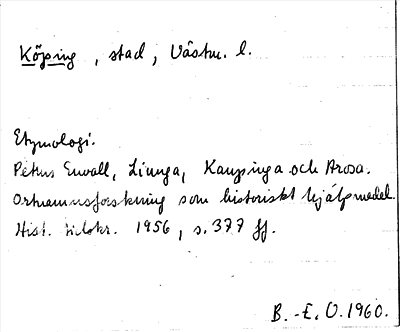 Köping, stad, Västm. l.
Etymologi.
Petrus Envall, Liunga, Kaupinga och Arosa.
Ortnamnsforskning som historiskt hjälpmedel.
Hist. tidskr. 1956, s. 377 ff.
B.-E. O. 1960.